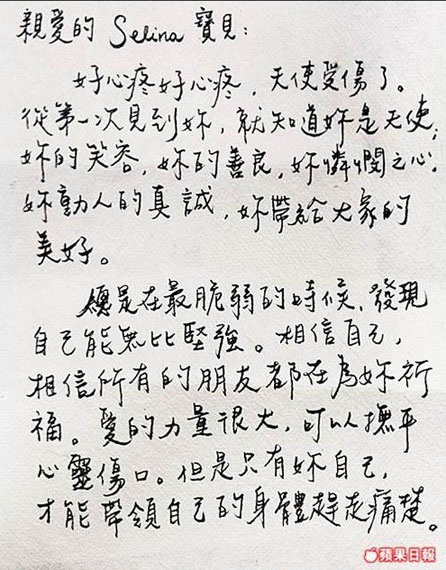 親愛的 Selina 寶貝：
好心疼好心疼，天使受傷了。
從第一次見到妳，就知道妳是天使，
妳的笑容，妳的善良，妳憐憫之心。
妳動人的真誠，妳帶給大家的
美好。
總是在最脆弱的時候，發現
自己能無比堅強。相信自己，
相信所有的朋友都在為妳祈
福。愛的力量很大，可以撫平
心靈傷口。但是只有妳自己，
才能帶領自己的身體趕走痛楚。
蘋果日報